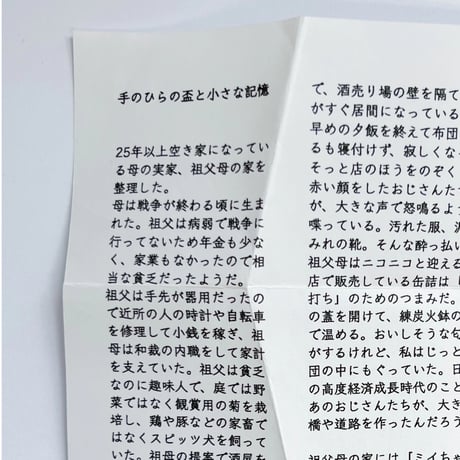 手のひらの盃と小さな記憶
25年以上空き家になってい
る母の実家、祖父母の家を
整理した。
母は戦争が終わる頃に生ま
れた。祖父は病弱で戦争に
行ってないため年金も少な
く、家業もなかったので相
当な貧乏だったようだ。
祖父は手先が器用だったの
で近所の人の時計や自転車
を修理して小銭を稼ぎ、祖
母は和裁の内職をして家計
を支えていた。祖父は貧乏
なのに趣味人で、庭では野
菜ではなく観賞用の菊を栽
培し、鶏や豚などの家畜で
はなくスピッツ犬を飼って
いた。祖母の提案で酒屋を
で、酒売り場の壁を隔て
がすぐ居間になっている
早めの夕飯を終えて布団
るも寝付けず、寂しくな
そっと店のほうをのぞく
赤い顔をしたおじさんた
が、大きな声で怒鳴るよ
喋っている。汚れた服、泥
みれの靴。そんな酔っ払い
祖父母はニコニコと迎える
店で販売している缶詰は「
打ち」のためのつまみだ。
の蓋を開けて、練炭火鉢の
で温める。おいしそうな匂
がするけれど、私はじっと
団の中にもぐっていた。日
の高度経済成長時代のこと
あのおじさんたちが、大き
橋や道路を作ったんだろう
祖父母の家には「ミイちゃ